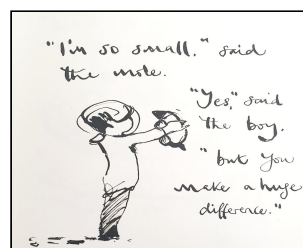 "I'm so small." said
the mole.
"Yes," said
the boy,
"but you
make a huge
difference."